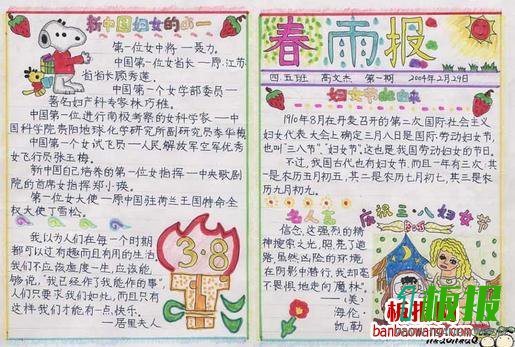 新中国妇女的小一
第一位女中将——聂力。
中国第一位女省长——原江苏
省省长顾秀莲。
中国第一个女学部委员——
著名妇产科专家林巧稚。
中国第一位进行南极考察的女科学家——中
国科学院贵阳地球化学研究所副研究员李华梅
中国第一个女试飞员——人民解放军空军优秀
女飞行员张玉梅。
新中国自己培养的第一位女指挥——中央歌剧
院的首席女指挥郑小瑛。
第一位女大使——原中国驻荷兰王国特命全
权大使丁雪松。
我以为人们在每一个时期
都可以过有趣而且有用的生活。
我们不应该虚度一生,应该能
够说,“我已经作了我能作的事”,
人们只要求我们如此,而且只有
这样我们才能有一点快乐。
——居里夫人
3·8
春雨报
四.五班 高文杰 第一期 2004年2月29日
妇女节的由来
1910年8月在丹麦召开的第二次国际社会主义
妇女代表大会上确定三月八日是国际劳动妇女节,
也叫“三八”节,“妇女节”,这也是我国劳动妇女的节日。
不过,我国古代也有妇女节,而且一年有三次:其
一是农历五月初五,其二是农历七月初七,其三是农
历九月初九。
名人言
信念,这强烈的精
神搜索之光,照亮了道
路,虽然凶险的环境
在阴影中潜行,我却毫
不畏惧地走向魔林。
——(美)
海伦·
凯勒
庆祝三·八妇女节
板报网
banbaowang.com